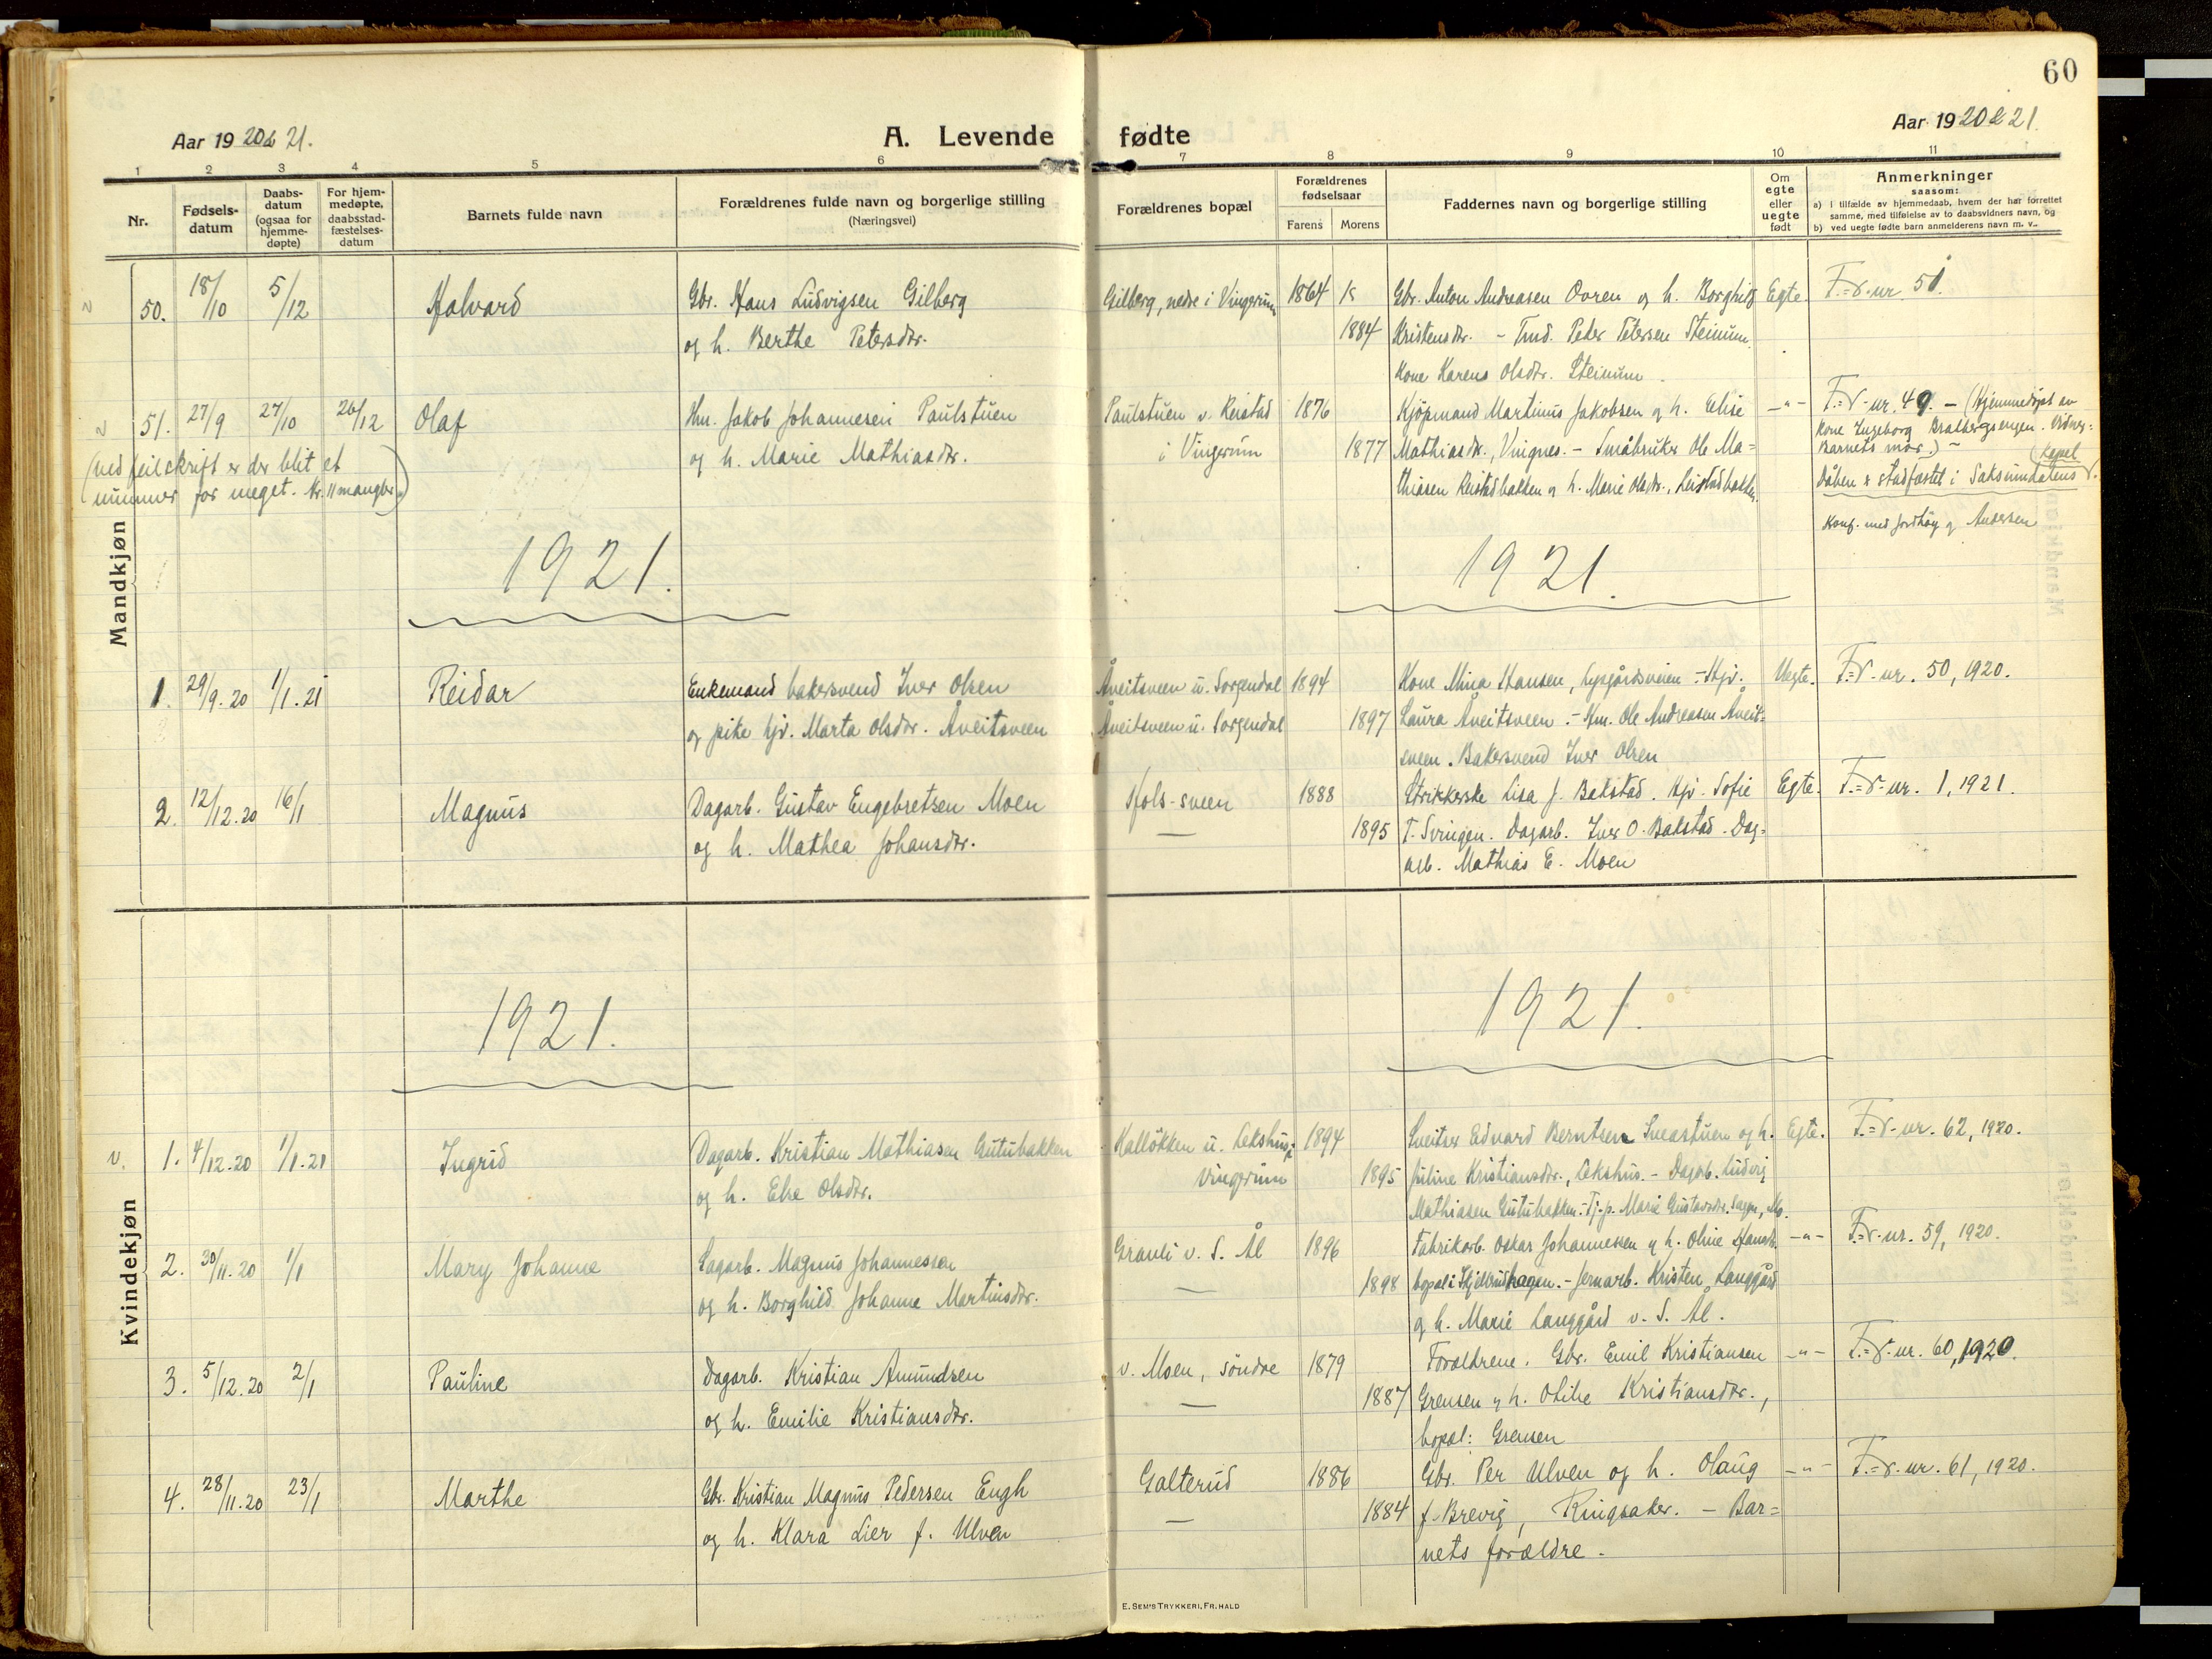 60
Aar 1920 & 21.
A. Levende fødte
Aar 1920 & 21.
1 2 3 4 5 6 7 8 9 10 11
Nr.
Fødsels-
datum
Daabs-
datum
(ogsaa for
hjemme-
døpte)
For hjem-
medøpte,
daabsstad-
fæstelses-
datum
Barnets fulde navn
Forældrenes fulde navn og borgerlige stilling
(Næringsvei)
Forældrenes bopæl
Forældrenes
fødselsaar
Farens Morens
Faddernes navn og borgerlige stilling
Om
egte
eller
uegte
født
Anmerkninger
saasom:
a) i tilfælde av hjemmedaab, hvem der har forrettet
samme, med tilføielse av to daabsvidners navn, og
b) ved uegte fødte barn anmelderens navn m. v.
Mandkjøn
v 50. 18/10 5/12 Halvard Gbr. Hans Ludvigsen Gilberg Gilberg, nedre i Vingrum 1864 Gbr. Anton Andreasen Ovren og h. Borghild Egte. F.=r. nr. 51.
og h. Berthe Petersdtr. 1884 Kristensdtr. - Peder Petersen Steinum.
Kone Karens Olsdtr. Steinum.
v 51. 27/9 27/10 26/12 Olaf Hm. Jakob Johannesen Paulstuen Paulstuen v. Reistad 1876 Kjöpmand Martinus Jakobsen og h. Elise -"- F.=r. nr. 49. - (Hjemmedöpt av
(ved feilskrift er der blit et og h. Marie Mathiasdtr. i Vingrum 1877 Mathiasdtr., Vingnes. - Småbruker Ole Ma= kone Ingeborg Bratbergsengen. Vidner:
nummer for meget. Nr. 11 mangler.) thiasen Reistadbakken og h. Marie Olsdtr., Reistadbakken. Barnets mor.) -
Dåben er stadfæstet i Saksumdalens (Kapel
Konf. med Jordhöy og Andersen
1921. 1921.
1. 29/9.20 1/1.21 Reidar Enkemand bakersvend Iver Olsen Åveitsveen u. Sorgendal 1894 Kone Mina Hansen, Lysgårdsveien. - Hjv. Uegte. F.=r. nr. 50, 1920.
og pike hjv. Marta Olsdtr. Åveitsveen Åveitsveen u. Sorgendal 1897 Laura Åveitsveen. - Hm. Ole Andreasen Åveit=
sveen. Bakersvend Iver Olsen
2. 12/12.20 16/1 Magnus Dagarb. Gustav Engebretsen Moen Hols-sveen 1888 Strikkerske Lisa J. Bakstad. Hjv. Sofie Egte. F.=r. nr. 1, 1921.
og h. Mathea Johansdtr. — 1895 T. Svingen. Dagarb. Iver O. Bakstad. Dag=
arb. Mathias E. Moen
Kvindekjøn
1921. 1921.
v. 1. 4/12.20 1/1.21 Ingrid Dagarb. Kristian Mathiasen Gutubakken Kallökken u. Lekshus, i 1894 Sveitser Edvard Berntsen Sveastuen og h. Egte. F.=r. nr. 62, 1920.
og h. Else Olsdtr. Vingrum 1895 Juline Kristiansdtr., Lekshus. - Dagarb. Ludvig
Mathiasen Gutubakken. - Tj.p. Marie Gustavsdtr.
2. 30/11.20 1/1 Mary Johanne Sagarb. Magnus Johannessen Granli v. S. Ål 1896 Fabrikarb. Oskar Johannessen og h. Oline Hansdtr. -"- F.=r. nr. 59, 1920.
og h. Borghild Johanne Martinsdtr. — 1898 bopæl i Skjellerudhagen. - Jernarb. Kristen Langgård
og h. Marie Langgård v. S. Ål.
3. 5/12.20 2/1 Pauline Dagarb. Kristian Amundsen v. Moen, söndre 1879 Forældrene. Gbr. Emil Kristiansen -"- F.=r. nr. 60, 1920.
og h. Emilie Kristiansdtr. — 1887 Grensen og h. Otilie Kristiansdtr.,
bopæl: Grensen
4. 28/11.20 23/1 Marthe Gbr. Kristian Magnus Pedersen Engh Galterud 1886 Gbr. Per Ulven og h. Olaug -"- F.=r. nr. 61, 1920.
og h. Klara Lier f. Ulven — 1884 f. Brevig, Ringsaker. - Bar=
nets forældre.
E. SEM'S TRYKKERI, FR.HALD